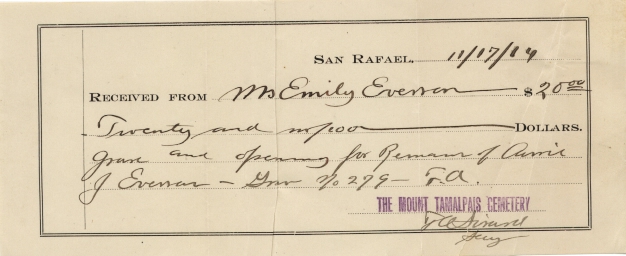 SAN RAFAEL, 11/17/19
RECEIVED FROM Mrs Emily Everson $20.00
Twenty and no/100 DOLLARS.
Grave and opening for Remains of Annie
J Everson – Grave No 279 – T.A.
THE MOUNT TAMALPAIS CEMETERY
Secy